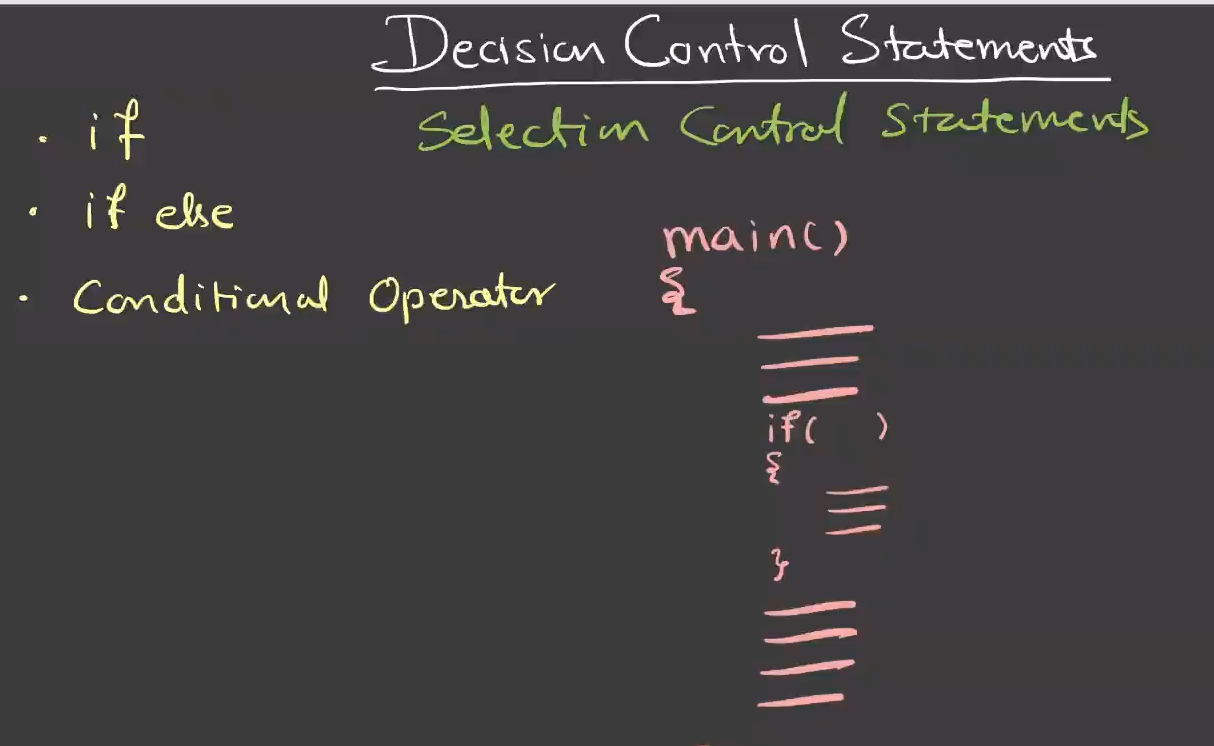 Decision Control Statements
Selection Control Statements
• if
• if else
• Conditional Operator
main()
{
if( )
{
}